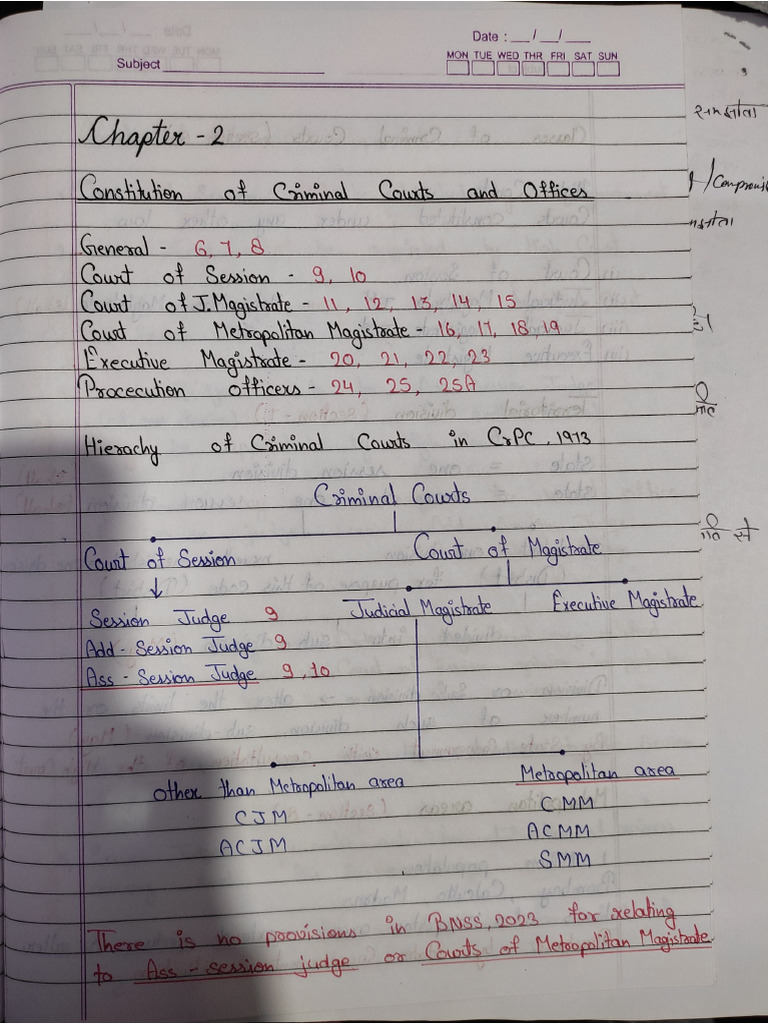 Date : __/__/__
Subject
MON TUE WED THR FRI SAT SUN
Chapter - 2
Constitution of Criminal Courts and Offices
General - 6, 7, 8
Court of Session - 9, 10
Court of J. Magistrate - 11, 12, 13, 14, 15
Court of Metropolitan Magistrate - 16, 17, 18, 19
Executive Magistrate - 20, 21, 22, 23
Procecution officers - 24, 25, 25A
Hierachy of Criminal Courts in CrPC, 1973
Criminal Courts
Court of Session Court of Magistrate
Session Judge 9 Judicial Magistrate Executive Magistrate
Add - Session Judge 9
Ass - Session Judge 9, 10
other than Metropolitan area Metropolitan area
CJM CMM
ACJM ACMM
SMM
There is no provisions in BNSS, 2023 for relating
to Ass - session judge or Courts of Metropolitan Magistrate